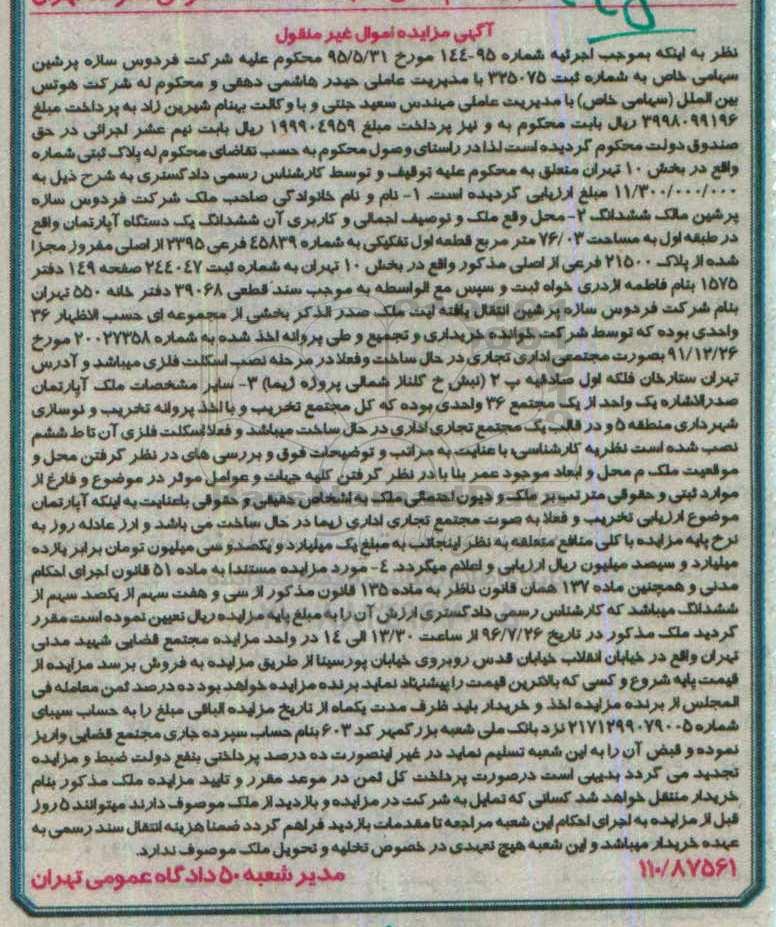 آگهی مزایده اموال غیر منقول
نظر به اینکه بموجب اجرئیه شماره ۹۵-۱۴۴ مورخ ۹۵/۵/۳۱ محکوم علیه شرکت فردوس سازه پرشین
سهامی خاص به شماره ثبت ۳۲۵۰۷۵ با مدیریت عاملی حیدر هاشمی دهقی و محکوم له شرکت هوتس
بین الملل (سهامی خاص) با مدیریت عاملی مهندس سعید جنتی و با وکالت بهنام شیرین زاد به پرداخت مبلغ
۳۹۹۸۰۹۹۱۹۶ ریال بابت محکوم به و نیز پرداخت مبلغ ۱۹۹۹۰۴۹۵۹ ریال بابت نیم عشر اجرائی در حق
صندوق دولت محکوم گردیده است لذا در راستای وصول محکوم به حسب تقاضای محکوم له پلاک ثبتی شماره
واقع در بخش ۱۰ تهران متعلق به محکوم علیه توقیف و توسط کارشناس رسمی دادگستری به شرح ذیل به
۱۱/۳۰۰/۰۰۰/۰۰۰ مبلغ ارزیابی گردیده است. ۱- نام و نام خانوادگی صاحب ملک شرکت فردوس سازه
پرشین مالک ششدانگ ۲- محل وقع ملک و توصیف اجمالی و کاربری آن ششدانگ یک دستگاه آپارتمان واقع
در طبقه اول به مساحت ۷۶/۰۳ متر مربع قطعه اول تفکیکی به شماره ۴۵۸۳۹ فرعی ۲۳۹۵ از اصلی مفروز مجزا
شده از پلاک ۲۱۵۰۰ فرعی از اصلی مذکور واقع در بخش ۱۰ تهران به شماره ثبت ۲۴۴۰۴۷ صفحه ۱۴۹ دفتر
۱۵۷۵ بنام فاطمه اژدری خواه ثبت و سپس مع الواسطه به موجب سند قطعی ۳۹۰۶۸ دفتر خانه ۵۵۰ تهران
بنام شرکت فردوس سازه پرشین انتقال یافته لیت ملک صدر الذکر بخشی از مجموعه ای حسب الاظهار ۳۶
واحدی بوده که توسط شرکت خوانده خریداری و تجمیع و طی پروانه اخذ شده به شماره ۲۰۰۲۷۳۵۸ مورخ
۹۱/۱۲/۲۶ بصورت مجتمعی اداری تجاری در حال ساخت وفعلا در مرحله نصب اسکلت فلزی میباشد و آدرس
تهران ستارخان فلکه اول صادقیه پ ۲ (نبش خ گلناز شمالی پروژه زیما) ۳- سایر مشخصات ملک آپارتمان
صدرالاشاره یک واحد از یک مجتمع ۳۶ واحدی بوده که کل مجتمع تخریب و با اخذ پروانه تخریب و نوسازی
شهرداری منطقه ۵ و در قالب یک مجتمع تجاری اداری در حال ساخت میباشد و فعلا اسکلت فلزی آن تا ط ششم
نصب شده است نظریه کارشناسی: با عنایت به مراتب و توضیحات فوق و بررسی های در نظر گرفتن محل و
موقعیت ملک م محل و ابعاد موجود عمر بنا با در نظر گرفتن کلیه جهات و عوامل موثر در موضوع و فارغ از
موارد ثبتی و حقوقی مترتب بر ملک و دیون احتمالی ملک به اشخاص حقیقی و حقوقی باعنایت به اینکه آپارتمان
موضوع ارزیابی تخریب و فعلا به صوت مجتمع تجاری اداری زیما در حال ساخت می باشد و ارز عادله روز به
نرخ پایه مزایده با کلی منافع متعلقه به نظر اینجانب به مبلغ یک میلیارد و یکصدو سی میلیون تومان برابر یازده
میلیارد و سیصد میلیون ریال ارزیابی و اعلام میگردد. ۴- مورد مزایده مستندا به ماده ۵۱ قانون اجرای احکام
مدنی و همچنین ماده ۱۳۷ همان قانون ناظر به ماده ۱۳۵ قانون مذکور از سی و هفت سهم از یکصد سهم از
ششدانگ میباشد که کارشناس رسمی دادگستری ارزش آن را به مبلغ پایه مزایده ریال تعیین نموده است مقرر
گردید ملک مذکور در تاریخ ۹۶/۷/۲۶ از ساعت ۱۳/۳۰ الی ۱۴ در واحد مزایده مجتمع قضایی شهید مدنی
تهران واقع در خیابان انقلاب خیابان قدس روبروی خیابان پورسینا از طریق مزایده به فروش برسد مزایده از
قیمت پایه شروع و کسی که بالاترین قیمت را پیشنهاد نماید برنده مزایده خواهد بود ده درصد ثمن معامله فی
المجلس از برنده مزایده اخذ و خریدار باید ظرف مدت یکماه از تاریخ مزایده الباقی مبلغ را به حساب سیبای
شماره ۲۱۷۱۲۹۹۰۷۹۰۰۵ نزد بانک ملی شعبه بزرگمهر کد ۶۰۳ بنام حساب سپرده جاری مجتمع قضایی واریز
نموده و قبض آن را به این شعبه تسلیم نماید در غیر اینصورت ده درصد پرداختی بنفع دولت ضبط و مزایده
تجدید می گردد بدیهی است درصورت پرداخت کل ثمن در موعد مقرر و تایید مزایده ملک مذکور بنام
خریدار منتقل خواهد شد کسانی که تمایل به شرکت در مزایده و بازدید از ملک موصوف دارند میتوانند ۵ روز
قبل از مزایده به اجرای احکام این شعبه مراجعه تا مقدمات بازدید فراهم گردد ضمنا هزینه انتقال سند رسمی به
عهده خریدار میباشد و این شعبه هیچ تعهدی در خصوص تخلیه و تحویل ملک موصوف ندارد.
۱۱۰/۸۷۵۶۱ مدیر شعبه ۵۰ دادگاه عمومی تهران